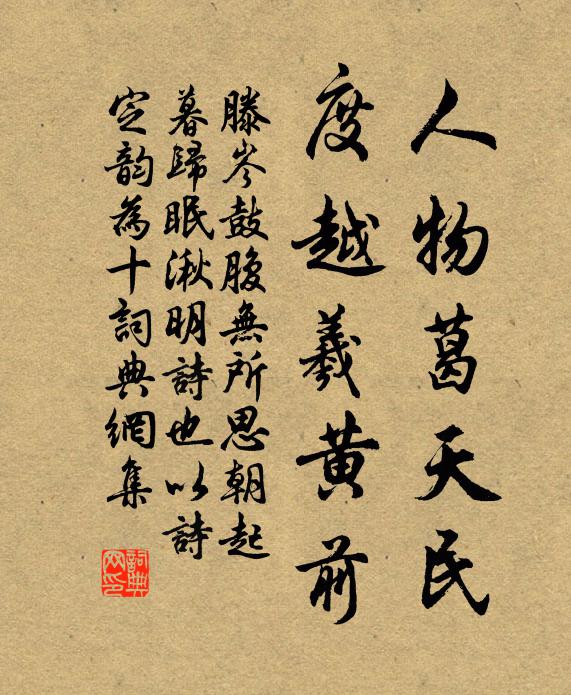 人物葛天民
度越羲黄前
滕岑鼓腹無所思朝起
暮歸眠湫明詩也以詩
定韵為十詞典網集
詞典
网印